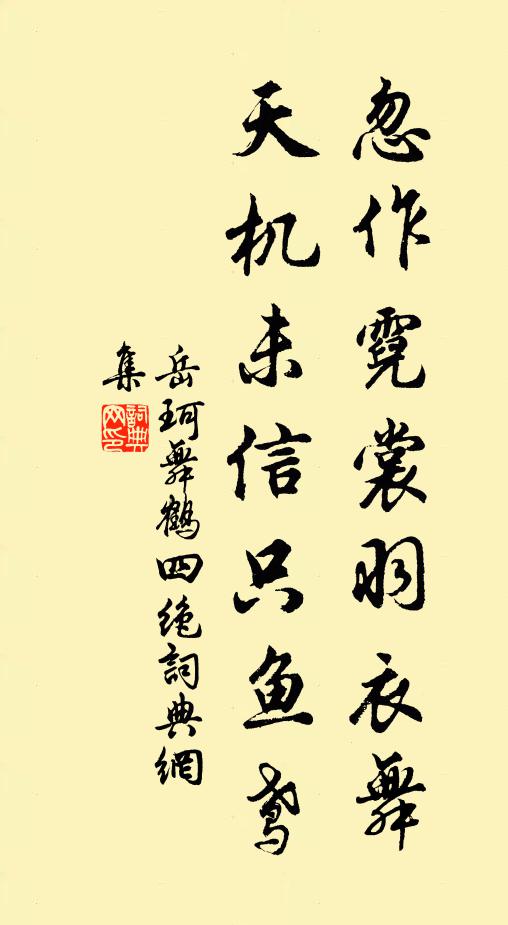 忽作霓裳羽衣舞
天机未信只鱼鸢
岳珂舞鶴四绝詞典網
集
詞典
网印